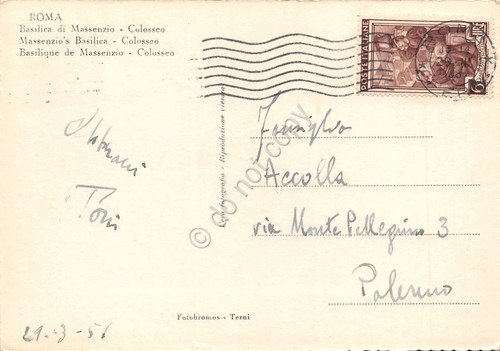 ROMA
Basilica di Massenzio - Colosseo
Massenzio's Basilica - Colosseo
Basilique de Massenzio - Colosseo
POSTE ITALIANE
Toni
29-3-51
Fotografia - Riproduzione vietata
© do not copy
Famiglia
Accolla
via Monte Pellegrino 3
Palermo
Fotobromos - Terni